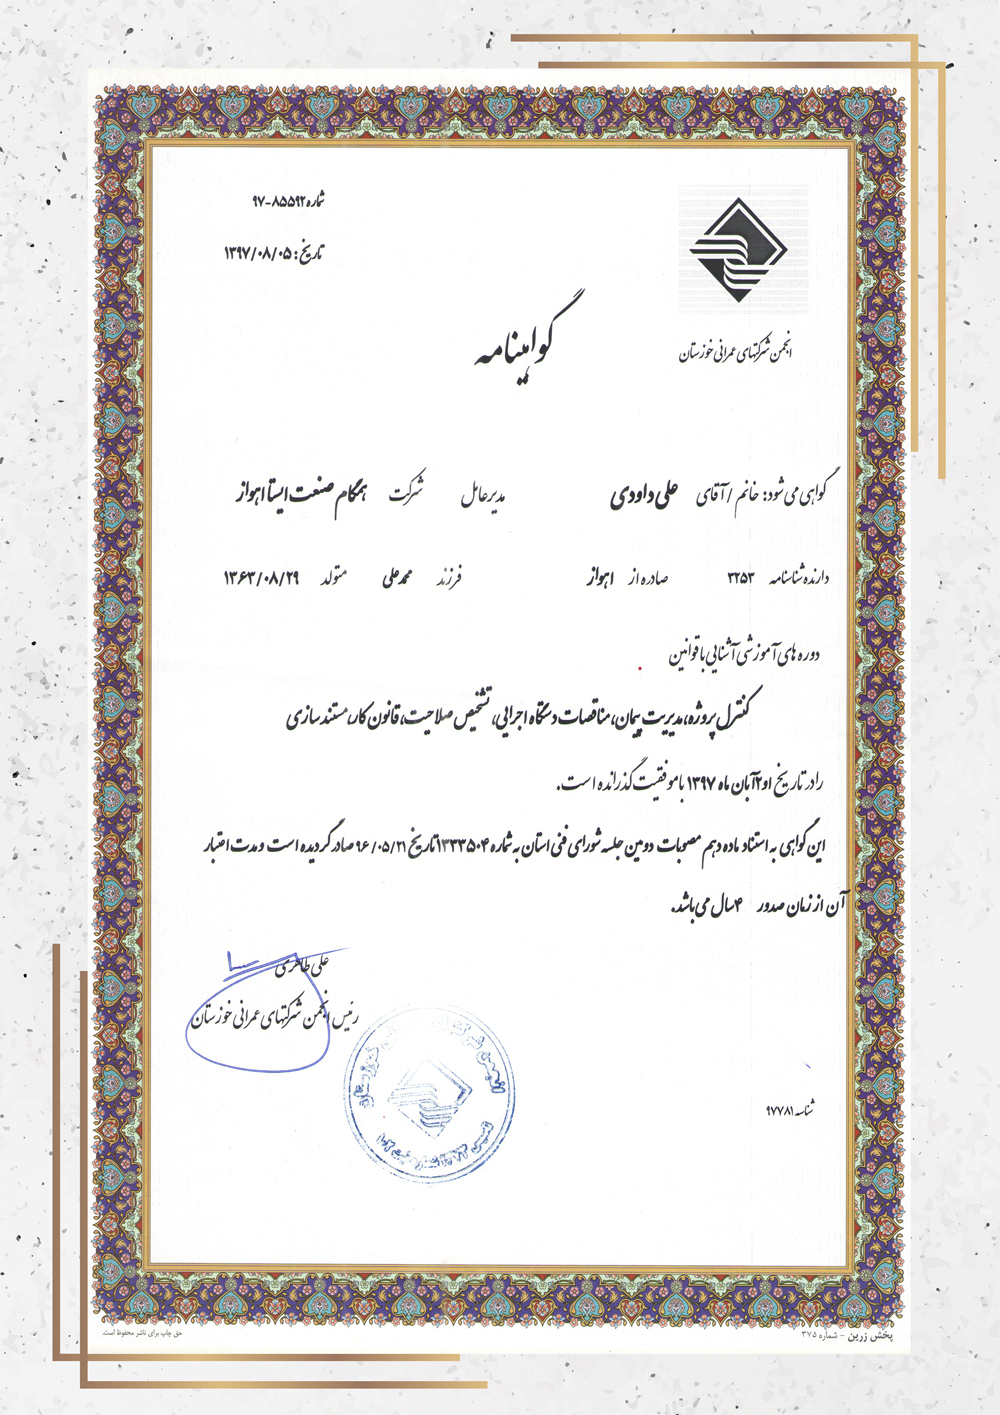 شماره ۸۵۵۹۲-۹۷
تاریخ: ۱۳۹۷/۰۸/۰۵
انجمن شرکتهای عمرانی خوزستان
گواهینامه
گواهی می شود: خانم / آقای علی داودی مدیرعامل شرکت همگام صنعت ایستا اهواز
دارنده شناسنامه ۳۲۵۳ صادره از اهواز فرزند محمدعلی متولد ۱۳۶۳/۰۸/۲۹
دوره های آموزشی آشنایی با قوانین
کنترل پروژه، مدیریت پیمان، مناقصات دستگاه اجرایی، تشخیص صلاحیت، قانون کار، مستندسازی
را در تاریخ ۱و۲آبان ماه ۱۳۹۷ با موفقیت گذرانده است.
این گواهی به استناد ماده دهم مصوبات دومین جلسه شورای فنی استان به شماره ۱۳۳۳۵۰۴تاریخ ۹۶/۰۵/۲۱ صادر گردیده است و مدت اعتبار
آن از زمان صدور ۴سال می باشد.
علی طاهری
رئیس انجمن شرکتهای عمرانی خوزستان
شناسه ۹۷۷۸۱
پخش زرین - شماره ۳۷۵
حق چاپ برای ناشر محفوظ است.